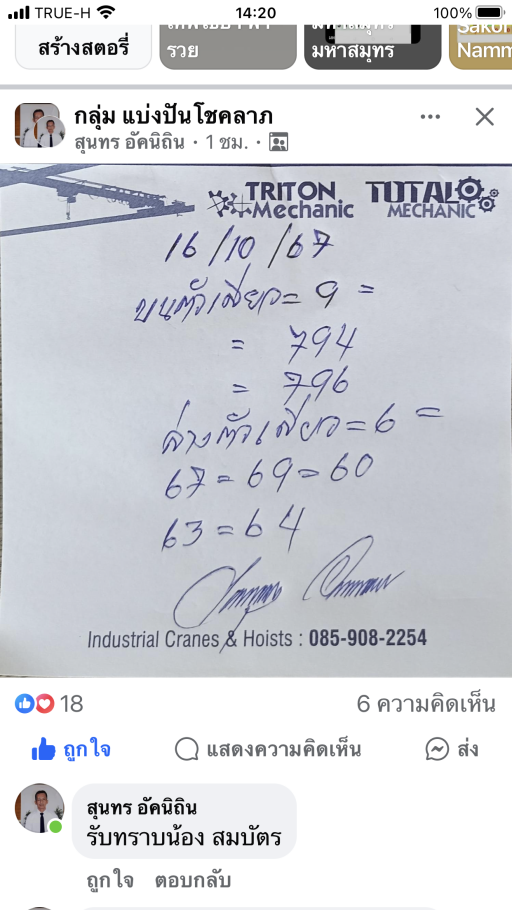 TRUE-H 14:20 100%
สร้างสตอรี่
รวย
มหาสมุทร
Namm
กลุ่ม แบ่งปันโชคลาภ
สุนทร อัคนิถิน · 1 ชม. ·
TRITON TOTAL
Mechanic MECHANIC
16/10/67
บนตัวเสียว= 9 =
= 794
= 796
ล่างตัวเสียว=6 =
67=69=60
63=64
Industrial Cranes & Hoists : 085-908-2254
18 6 ความคิดเห็น
ถูกใจ แสดงความคิดเห็น ส่ง
สุนทร อัคนิถิน
รับทราบน้อง สมบัตร
ถูกใจ ตอบกลับ